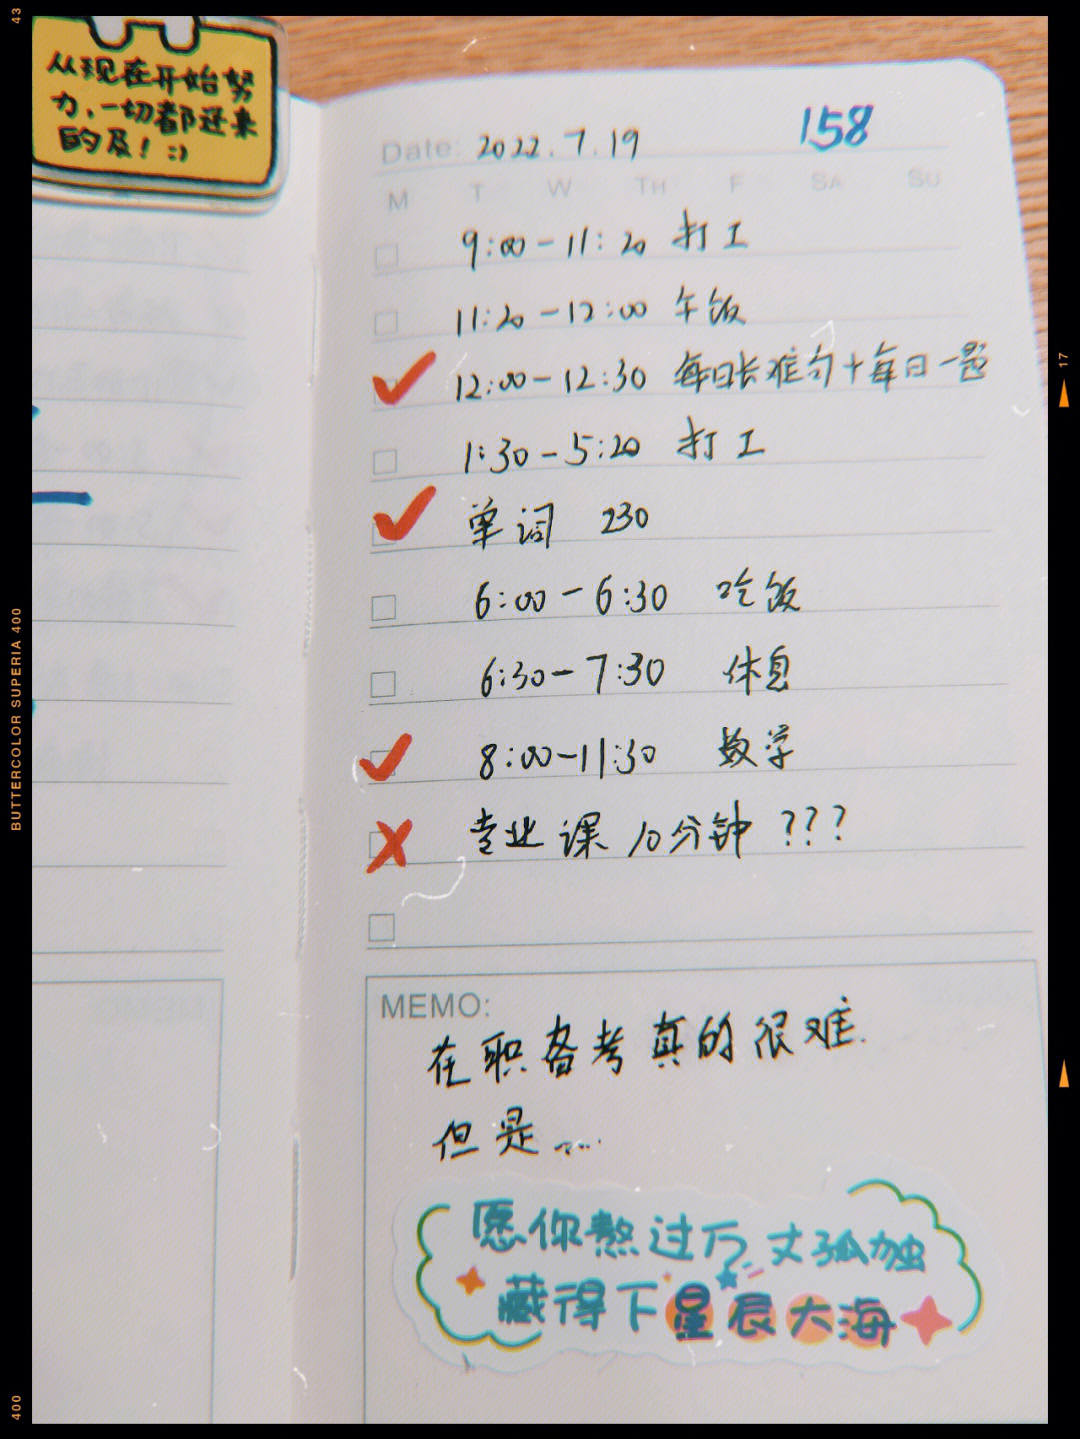 从现在开始努
力，一切都还来
的及！:)
158
Date: 2022.7.19
M T W TH F SA SU
9:00-11:20 打工
11:20-12:00 午饭
12:00-12:30 每日长难句+每日一题
1:30-5:20 打工
单词 230
6:00-6:30 吃饭
6:30-7:30 休息
8:00-11:30 数学
专业课10分钟???
MEMO:
在职备考真的很难.
但是……
愿你熬过万丈孤独
藏得下星辰大海
43
17
BUTTERCOLOR SUPERIA 400
400